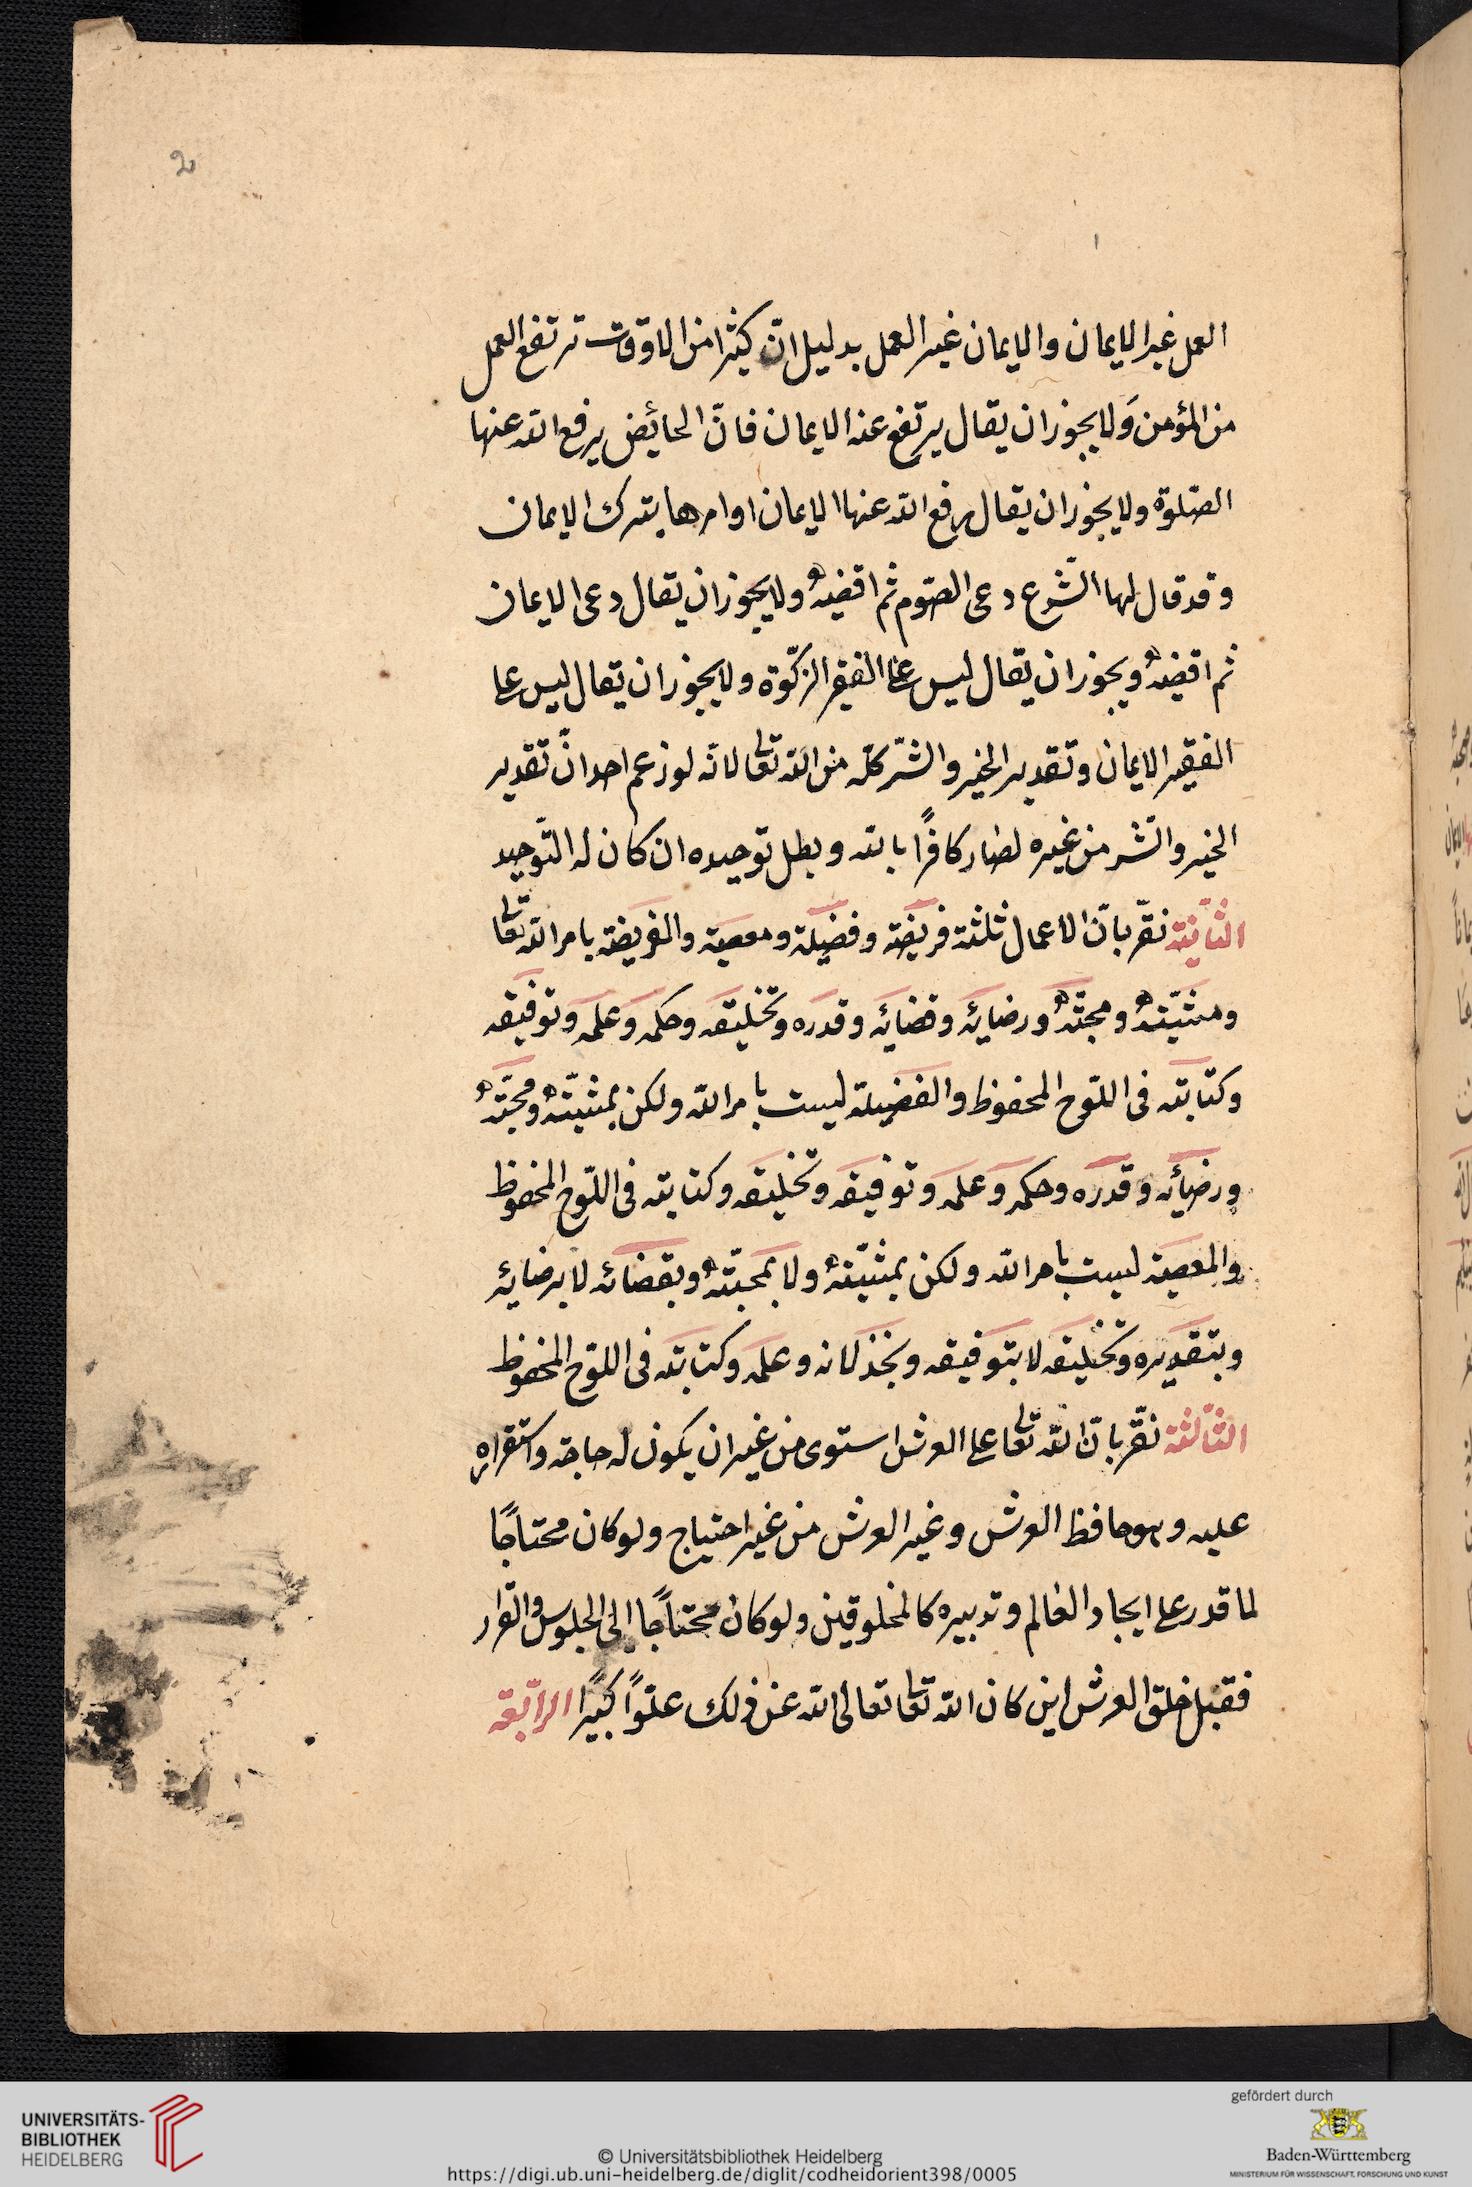 2
العمل غير الايمان والايمان غير العمل بدليل انّ كثيرا من الاوقات ترتفع العمل
من المؤمن وَلا يجوز ان يقال يرتفع عنه الايمان فانّ الحائض يرفع الله عنها
الصّلوة ولا يجوز ان يقال رفع الله عنها الايمان او امرها بترك الايمان
وقد قال لها الشّرع دعى الصّوم ثم اقضيه ولا يجوز ان يقال دعى الايمان
ثم اقضيه ويجوز ان يقال ليس على الفقير الزكّوة ولا يجوز ان يقال ليس على
الفقير الايمان وتقدير الخير والشّر كلّه من الله تعالى لانّه لو زعم احد انّ تقدير
الخير والشّر من غيره لصار كافرًا بالله وبطل توحيده ان كان له التّوحيد
الثّانية نقرّ بانّ الاعمال ثلثة فريضة وفضيلة ومعصية والفريضة بامر الله تعالى
ومشيّته ومحبّته ورضايّه وقضايّه وقدره وتخليقه وحكمه وعلمه وتوفيقه
وكتابته فى اللّوح المحفوظ والفضيلة ليست بامر الله ولكن بمشيّته ومحبّته
ورضائه وقدره وحكمه وعلمه وتوفيقه وتخليقه وكتابته فى اللّوح المحفوظ
والمعصية ليست بامر الله ولكن بمشيّته ولا بمحبّته وبقضائه لا برضايّه
وبتقديره وتخليقه لا بتوفيقه وبخذلانه وعلمه وكتابته فى اللّوح المحفوظ
الثّالثة نقرّ بانّ الله تعالى على العرش استوى من غير ان يكون له حاجة واستقرار
عليه وهو حافظ العرش وغير العرش من غير احتياج ولو كان محتاجًا
لما قدر على ايجاد العالم وتدبيره كالمخلوقين ولو كان محتاجًا الى الجلوس والقرار
فقبل خلق العرش اين كان الله تعالى تعالى الله عن ذلك علوّا كبيرًا الرّابعة
UNIVERSITÄTS-
BIBLIOTHEK
HEIDELBERG
© Universitätsbibliothek Heidelberg
https://digi.ub.uni-heidelberg.de/diglit/codheidorient398/0005
gefördert durch
Baden-Württemberg
MINISTERIUM FÜR WISSENSCHAFT, FORSCHUNG UND KUNST